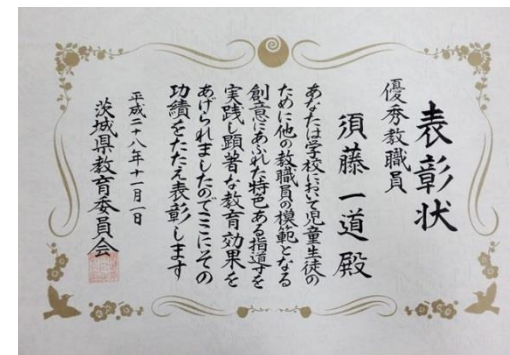 表彰状
優秀教職員
須藤一道殿
あなたは学校において児童生徒の
ために他の教職員の模範となる
創意にあふれた特色ある指導を
実践し顕著な教育効果を
あげられましたのでここにその
功績をたたえ表彰します
平成二十八年十一月一日
茨城県教育委員会